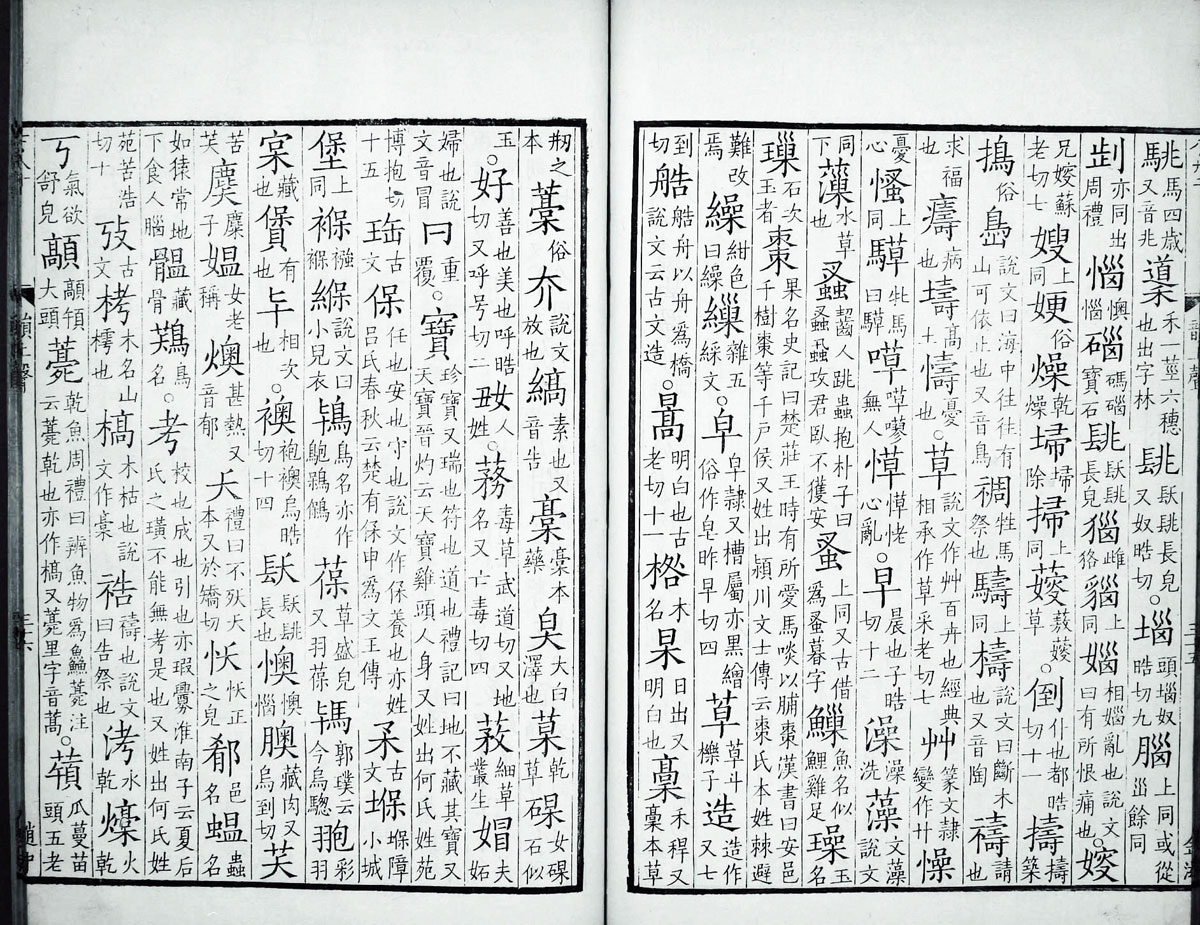 駣馬四歳又音兆䆃禾一莖六穗也出字林𨲭镺𨲭長皃又奴晧切○堖頭堖奴晧切九腦上同或從𡿺餘同
亦同出周禮惱懊惱碯碼碯寶石镺長皃雌狢上同㛴相㛴亂也說文曰有所恨痛也○㛐
兄㛐蘇老切七嫂上同㛮俗燥乾燥埽埽除掃上同草○倒仆也都晧切十一擣擣築
搗俗島說文曰海中往往有山可依止也又音鳥禂牲馬祭也上同檮說文曰斷木也又音陶禱請也
求福𤻮病壔高土懤憂也○草說文作艸百卉也經典相承作草采老切七艸篆文隷變作廾懆
憂心慅上同騲牝馬曰騲𠹊𠹊嘐無人愺愺恅心亂○早晨也子晧切十二澡澡洗藻文藻說文
同下薻水草也蝨齧人跳蟲抱朴子曰蚤蝨攻君臥不獲安蚤上同又古借爲蚤暮字鱢魚名似鯉雞足璪玉名
璅石次玉者棗果名史記曰楚莊王時有所愛馬啖以脯棗漢書曰安邑千樹棗等千戸侯又姓出潁川文士傳云棗氏本姓棘避
難改焉繰紺色曰繰繅雜五綵文○皁皁隷又槽屬亦黑繒俗作皂昨早切四草草斗櫟子造造作又七
到切艁艁舟以舟爲橋說文云古文造○暠明白也古老切十一㭘木名杲日出又明白也稾禾稈又稾本草
之本藁俗夰說文放也縞素也又音告槀槀本藥臭大白澤也乾草女石似
玉○好善也美也呼晧切又呼号切二人姓○蓩毒草武道切又地名又亡毒切四細草叢生媢夫妬
婦也說文音冒冃重覆○寶珍寶又瑞也符也道也禮記曰地不藏其寶又天寶晉灼云天寶雞頭人身又姓出何氏姓苑
博抱切十五珤古文保任也安也守也說文作保養也亦姓吕氏春秋云楚有保申爲文王傳古文堢堢障小城
堡上同褓襁褓緥說文曰小兒衣鴇鳥名亦作葆草盛皃又羽葆郭璞云今烏驄彩羽
藏也有也相次也○襖袍襖烏晧切十四镺長也懊懊惱藏肉又烏到切芺
苦芺麋子媪女老稱燠甚熱又音郁夭禮曰不殀夭本又於矯切邑名蝹蟲名
如猿常地下食人腦藏骨鳥名○考校也成也引也亦瑕舋淮南子云夏后氏之璜不能無考是也又姓出何氏姓
苑苦浩切十攷古文栲木名山樗也槁木枯也說文作槀祰禱也說文曰告祭也洘水乾燺火乾
丂氣欲舒皃大頭薧乾魚周禮曰辨魚物爲鱻薧注云薧乾也亦作槁又薧里字音蒿○瓜蔓苗頭五老